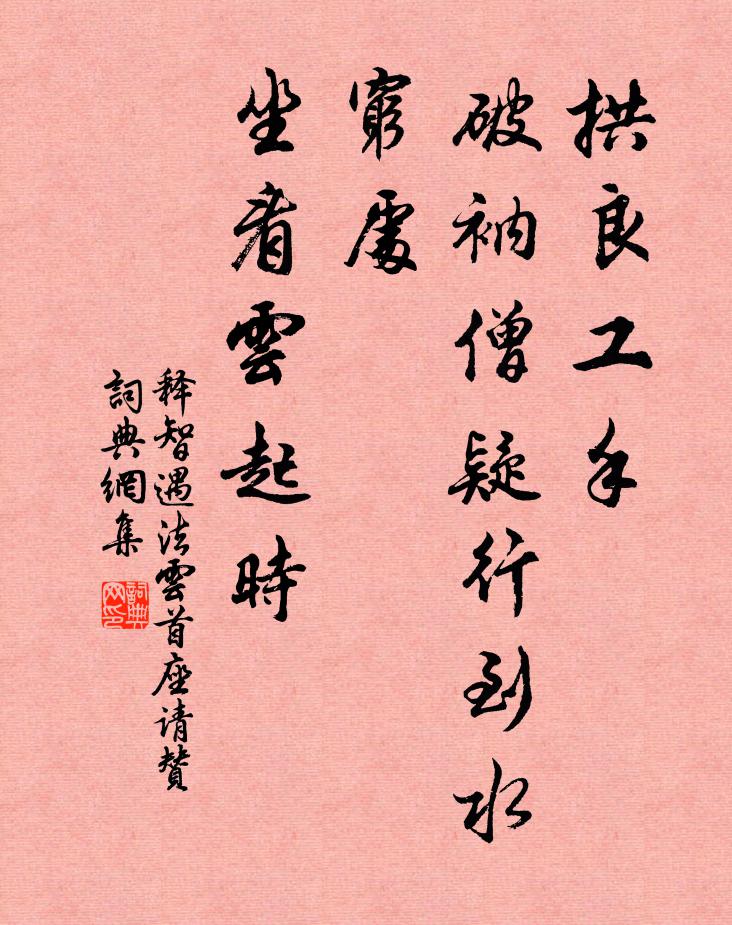 拱良工手
破衲僧疑行到水
窮處
坐看雲起時
释智遇法雲首座请赞
詞典網集
詞典网印